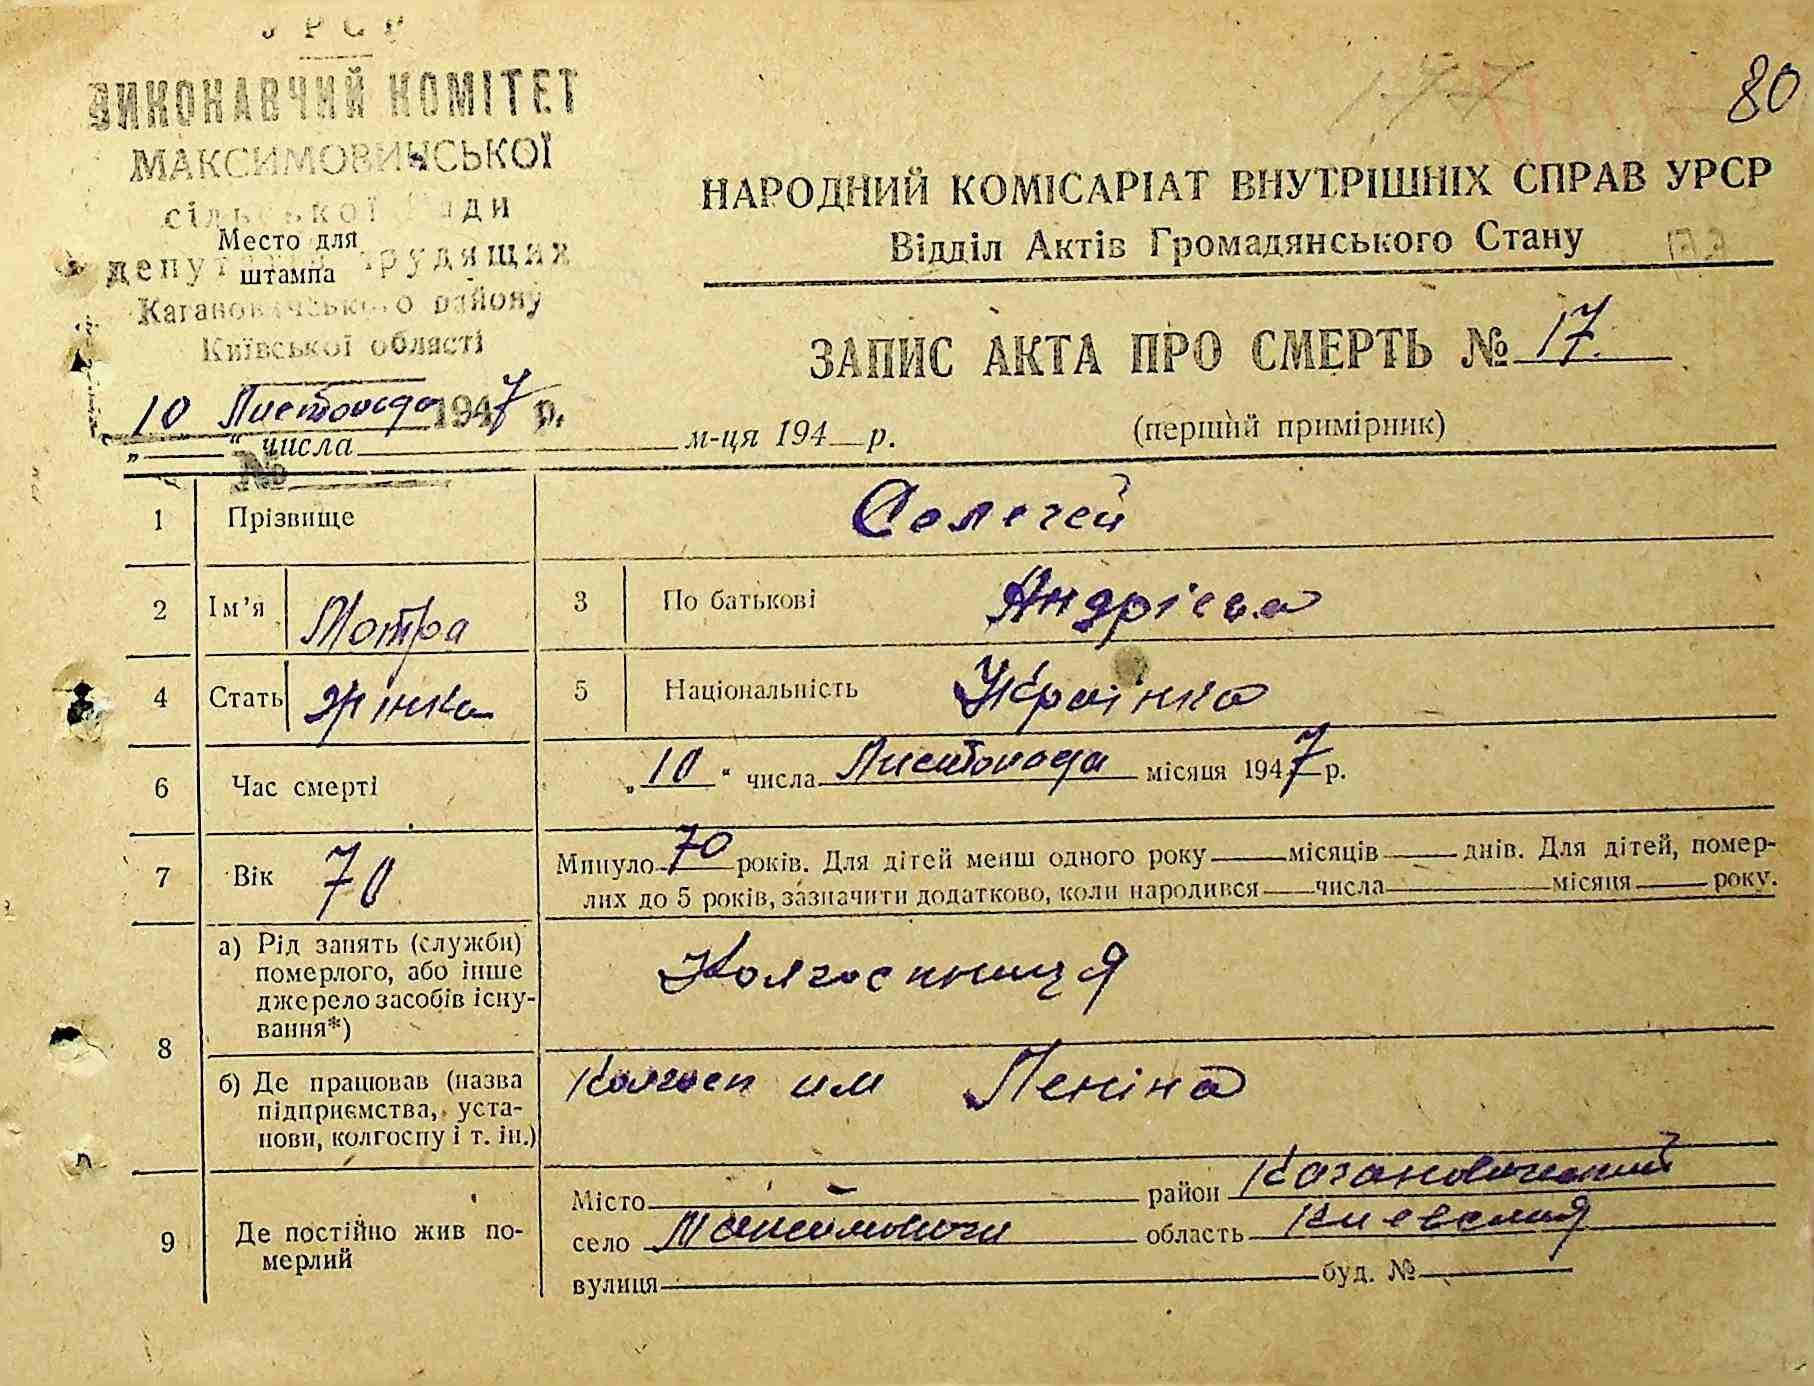 УРСР
80
ВИКОНАВЧИЙ КОМІТЕТ
МАКСИМОВИЧСЬКОЇ
сільської Ради
депутатів трудящих
Кагановичського району
Київської області
Место для
штампа
10 Листопада 1947 р.
№
НАРОДНИЙ КОМІСАРІАТ ВНУТРІШНІХ СПРАВ УРСР
Відділ Актів Громадянського Стану
177
ЗАПИС АКТА ПРО СМЕРТЬ № 17.
„ “ числа м-ця 194 р.
(перший примірник)
1 Прізвище Селегей
2 Ім’я Мотра 3 По батькові Андрієва
4 Стать жінка 5 Національність Українка
6 Час смерті „10“ числа Листопада місяця 1947 р.
7 Вік 70 Минуло 70 років. Для дітей менш одного року місяців днів. Для дітей, помер-
лих до 5 років, зазначити додатково, коли народився числа місяця року.
8 а) Рід занять (служби)
померлого, або інше
джерело засобів існу-
вання*)
Колгоспниця
б) Де працював (назва
підприємства, уста-
нови, колгоспу і т. ін.)
Колгосп им Леніна
9 Де постійно жив по-
мерлий
Місто — район Кагановичский
село Максимовичи область Киевская
вулиця буд. №